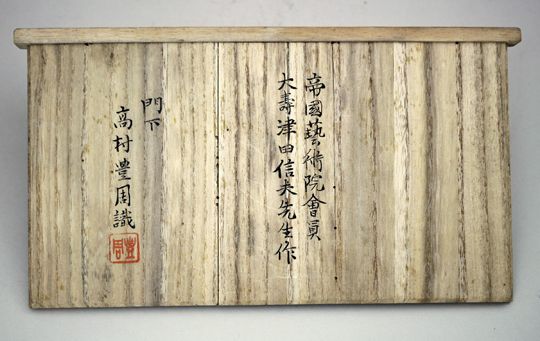 帝國藝術院會員
大壽津田信夫先生作
門下
高村豊周識
豊周